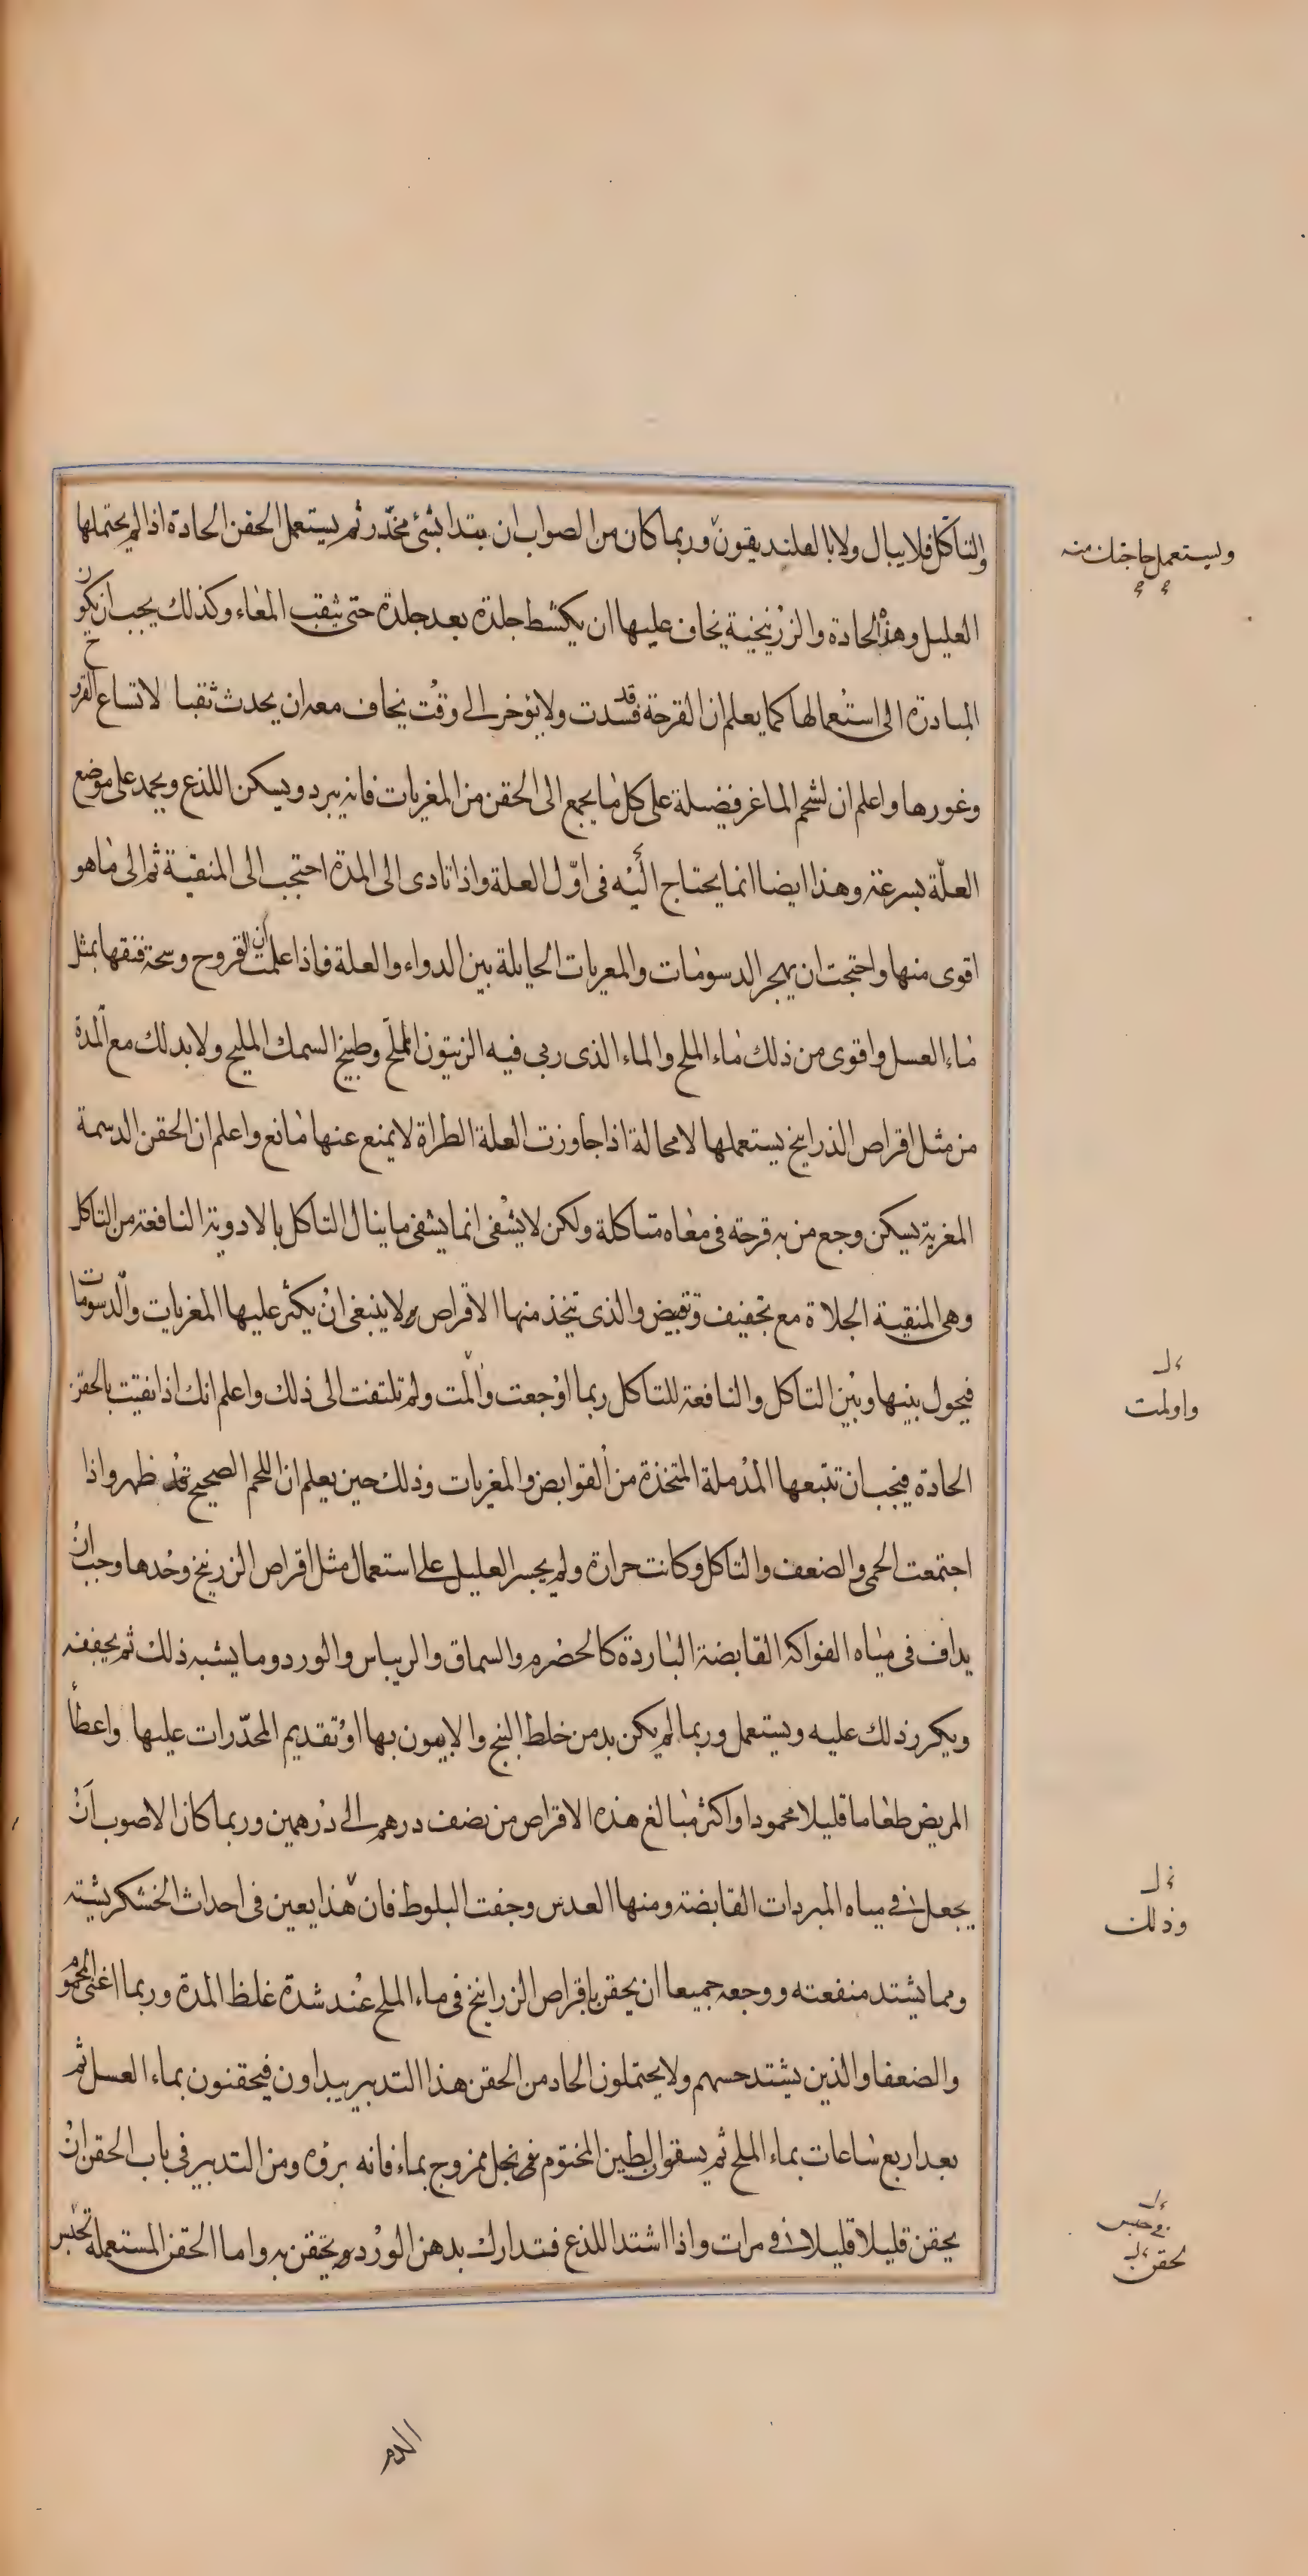 والتاكل فلا يبال ولا بالفلنديقون وربما كان من الصواب ان يبتدا بشئ مخدّر ثم يستعمل الحقن الحادة اذا لم يحتملها
ويستعمل حاجتك منه
العليل وهذه الحادة والزرنيخية يخاف عليها ان يكشط جلدة بعد جلدة حتى يثقب المعاء وكذلك يجب ان يكون
المبادرة الى استعمالها كما يعلم ان القرحة قد فسدت ولا يؤخر الى وقت يخاف معه ان يحدث ثقبا لاتساع القروح
وغورها واعلم ان لشحم الماعز فضيلة على كل ما يجمع الى الحقن من المغريات فانه يبرد ويسكن اللذع ويجمد على موضع
العلّة بسرعته وهذا ايضا انما يحتاج اليه فى اوّل العلة واذا تادى الى المدة احتجب الى المنقية ثم الى ما هو
اقوى منها واحتجت ان يهجر الدسومات والمعريات الحايلة بين الدواء والعلة فاذا علمت ان القروح وسخة فنقها بمثل
ماء العسل واقوى من ذلك ماء الملح والماء الذى ربى فيه الزيتون المملّح وطبيخ السمك المليح ولا بد لك مع المدة
من مثل اقراص الذرانيخ يستعملها لا محالة اذا جاوزت العلة الطراة لا يمنع عنها مانع واعلم ان الحقن الدسمة
المغرية يسكن وجع من به قرحة فى معاه متاكلة ولكن لا يشفى انما يشفى ما ينال التاكل بالادوية النافعة من التاكل
وهى المنقية الجلاة مع تجفيف وقبض والذى تتخذ منها الاقراص ولا ينبغى ان يكثر عليها المغريات والدسومات
فيحول بينها وبين التاكل والنافعة للتاكل ربما اوجعت والمت ولم تلتفت الى ذلك واعلم انك اذا نقيت بالحقن
واولمت
الحادة فيجب ان تتبعها المدملة المتخذة من القوابض والمغريات وذلك حين يعلم ان اللحم الصحيح قد ظهر واذا
اجتمعت الحمى والضعف والتاكل وكانت حرارة ولم يجسر العليل على استعمال مثل اقراص الزرنيخ وحدها وجب ان
يداف فى مياه الفواكه القابضة الباردة كالحضرم والسماق والريباس والورد وما يشبه ذلك ثم يجففه
ويكرر ذلك عليه ويستعمل وربما لم يكن بد من خلط البنج والافيون بها او تقديم المخدّرات عليها واعطا
المريض طعاما قليلا محمودا واكثر مبالغ هذه الاقراص من نصف درهم الى درهمين وربما كان الاصوب ان
يجعل فى مياه المبردات القابضة ومنها العدس وجفت البلوط فان هذا يعين فى احداث الخشكريشة
وذلك
ومما يشتد منفعته ووجعه جميعا ان يحقن باقراص الزرانيخ فى ماء الملح عند شدة غلظ المدة وربما اغنى المحموم
والضعفا والذين يشتد حسهم ولا يحتملون الحاد من الحقن هذا التدبير يبداون فيحقنون بماء العسل ثم
بعد اربع ساعات بماء الملح ثم يسقون الطين المختوم فى خل ممزوج بماء فانه برؤه ومن التدبير فى باب الحقن ان
يحقن قليلا قليلا فى مرات واذا اشتد اللذع فتدارك بدهن الورد ويحقن به واما الحقن المستعملة تحبس
بحقن
الدم